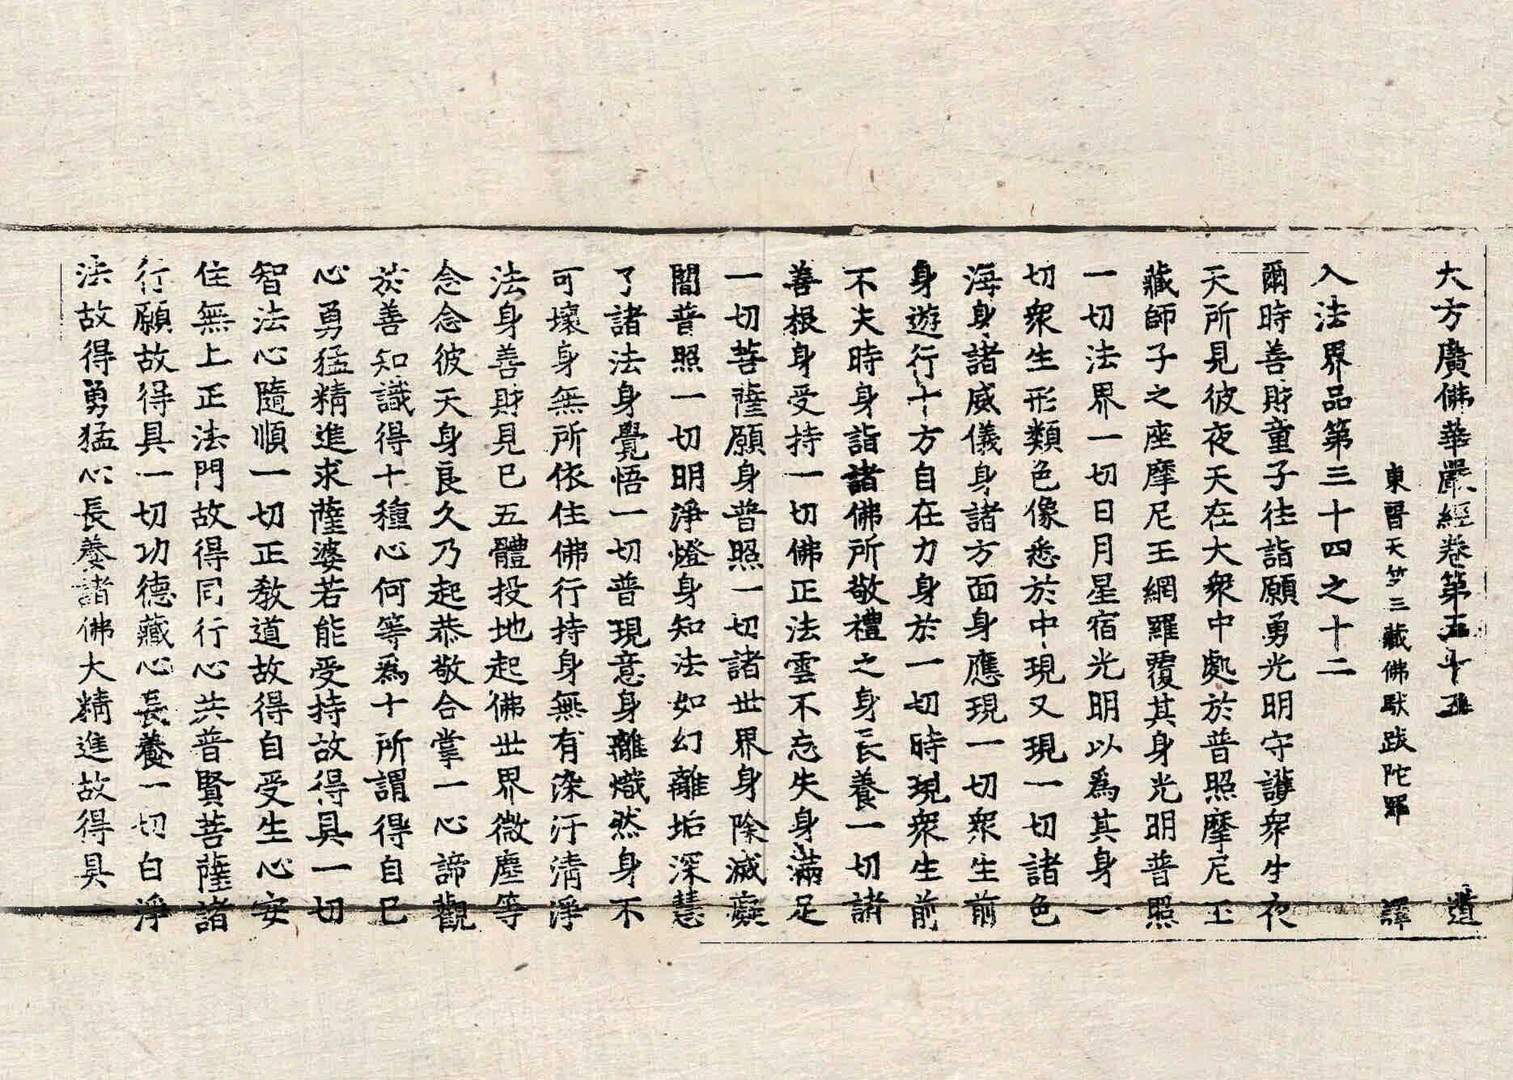 大方廣佛華嚴經卷第五十五 遺
東晉天竺三藏佛馱跋陀羅 譯
入法界品第三十四之十二
爾時善財童子往詣願勇光明守護衆生夜
天所見彼夜天在大衆中處於普照摩尼王
藏師子之座摩尼王網羅覆其身光明普照
一切法界一切日月星宿光明以爲其身一
切衆生形類色像悉於中現又現一切諸色
海身諸威儀身諸方面身應現一切衆生前
身遊行十方自在力身於一切時現衆生前
不失時身詣諸佛所敬禮之身長養一切諸
善根身受持一切佛正法雲不忘失身滿足
一切菩薩願身普照一切諸世界身除滅癡
闇普照一切明淨燈身知法如幻離垢深慧
了諸法身覺悟一切普現意身離熾然身不
可壞身無所依住佛行持身無有染汙清淨
法身善財見已五體投地起佛世界微塵等
念念彼天身良久乃起恭敬合掌一心諦觀
於善知識得十種心何等爲十所謂得自已
心勇猛精進求薩婆若能受持故得具一切
智法心隨順一切正教道故得自受生心安
住無上正法門故得同行心共普賢菩薩諸
行願故得具一切功德藏心長養一切白淨
法故得勇猛心長養諸佛大精進故得具